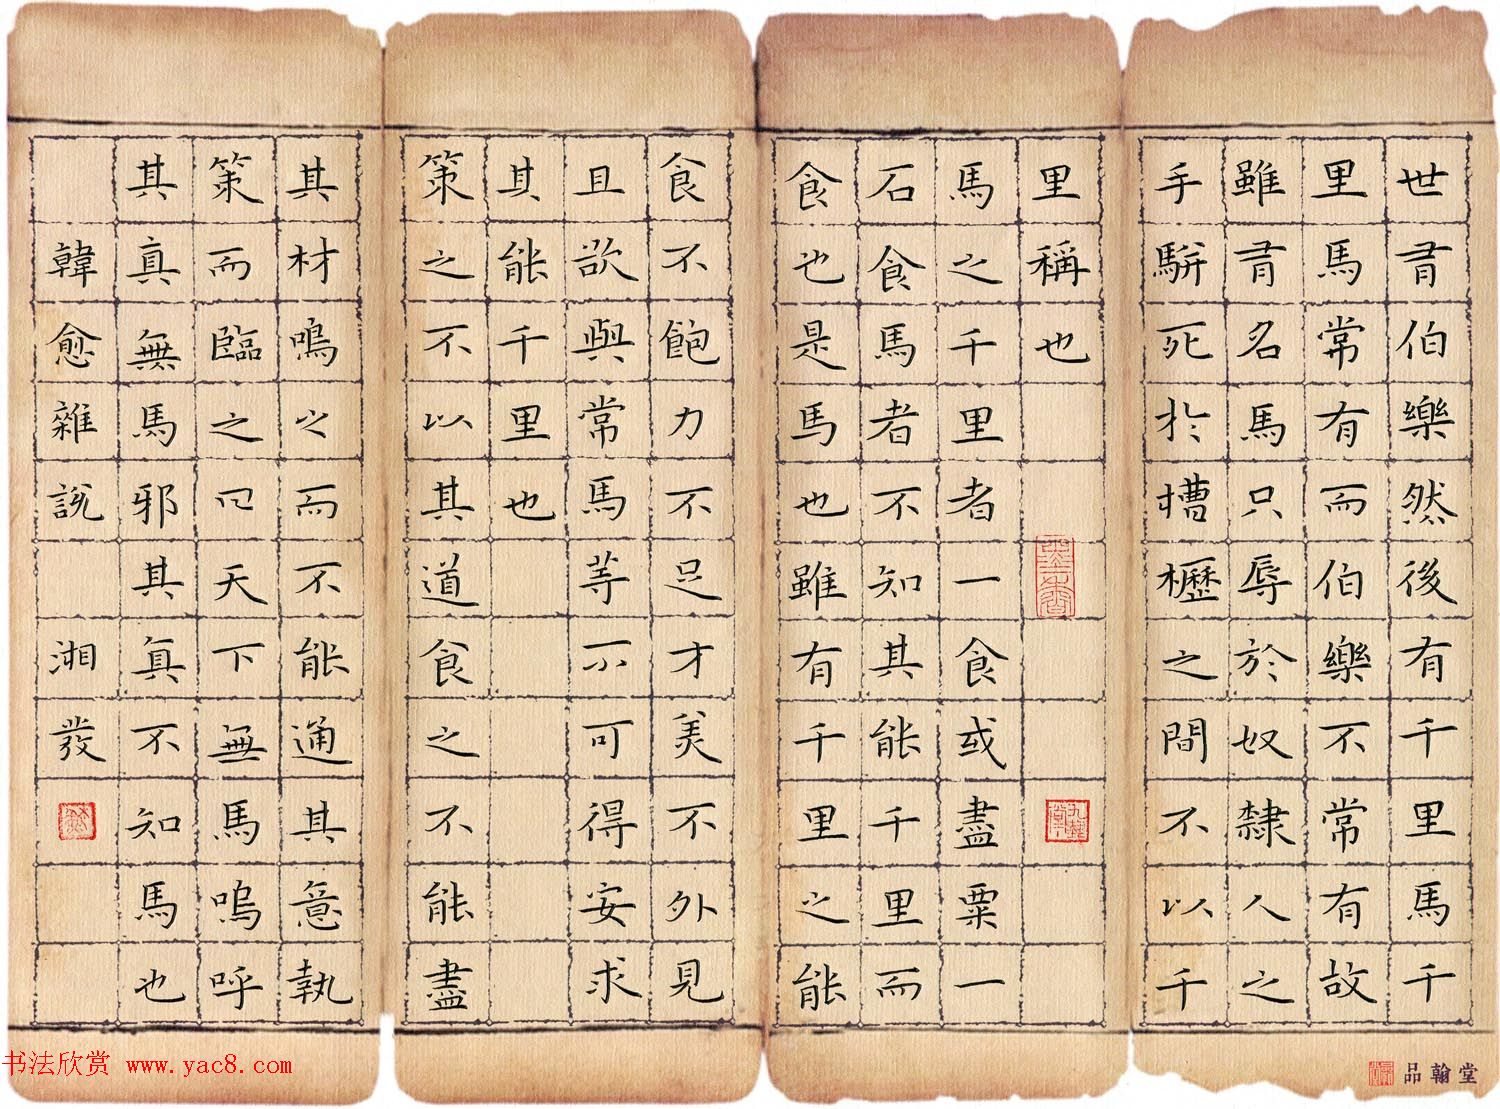 世有伯樂然後有千里馬千
里馬常有而伯樂不常有故
雖有名馬只辱於奴隸人之
手駢死於槽櫪之間不以千
里稱也
馬之千里者一食或盡粟一
石食馬者不知其能千里而
食也是馬也雖有千里之能
食不飽力不足才美不外見
且欲與常馬等不可得安求
其能千里也
策之不以其道食之不能盡
其材鳴之而不能通其意執
策而臨之曰天下無馬嗚呼
其真無馬邪其真不知馬也
韓愈雜說 湘發
墨香
品翰堂
书法欣赏 www.yac8.com